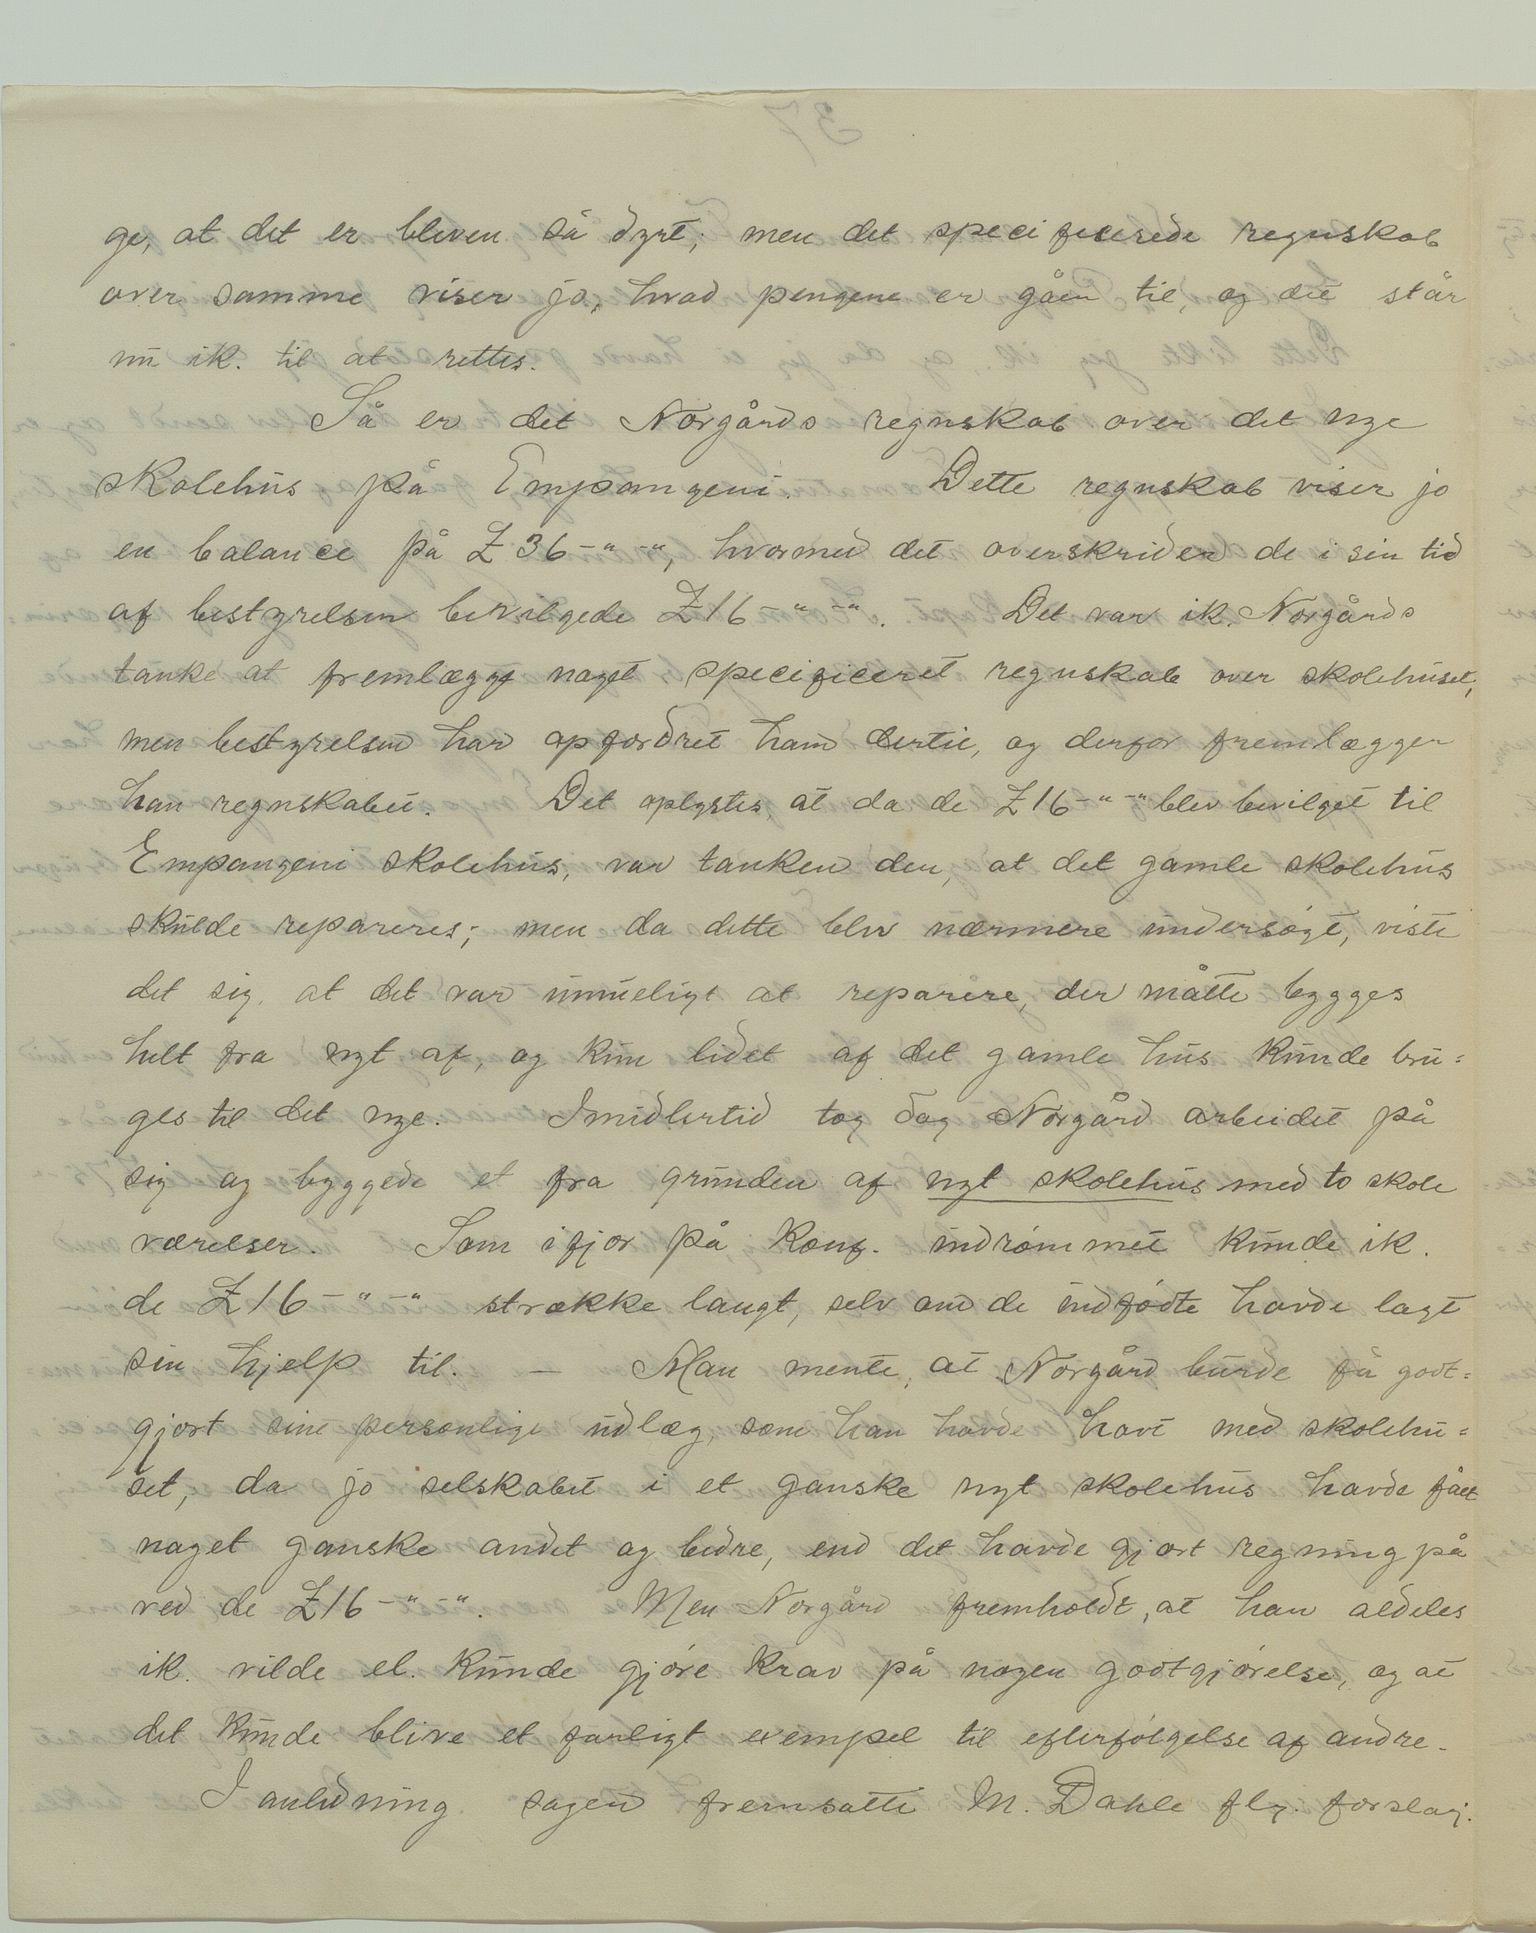 ge, at det er bleven så dyrt; men det specificerede regnskab
over samme viser jo, hvad pengene er gåen til, og det står
nu ik. til at rettes.
Så er det Norgårds regnskab over det nye
skolehus på Empangeni. Dette regnskab viser jo
en balance på £36-"-", hvormed det overskrider de i sin tid
af bestyrelsen bevilgede £16-"-". Det var ik. Norgårds
tanke at fremlægge noget specificeret regnskab over skolehuset,
men bestyrelsen har opfordret ham dertil, og derfor fremlægger
han regnskabet. Det oplystes, at da de £16-"-" blev bevilget til
Empangeni skolehus, var tanken den, at det gamle skolehus
skulde repareres; men da dette blev nærmere undersøgt, viste
det sig, at det var umueligt at reparere, der måtte bygges
helt fra nyt af, og kun lidet af det gamle hus kunde bru=
ges til det nye. Imidlertid tog dog Norgård arbeidet på
sig og byggede et fra grunden af nyt skolehus med to skole
værelser. Som ifjor på Konf. indrømmet kunde ik.
de £16-"-" strække langt, selv om de indfødte havde lagt
sin hjelp til. — Man mente, at Norgård burde få godt=
gjort sine personlige udlæg, som han havde havt med skolehu=
set, da jo selskabet i et ganske nyt skolehus havde fået
noget ganske andet og bedre, end det havde gjort regning på
ved de £16-"-". Men Norgård fremholdt, at han aldeles
ik. vilde el. kunde gjøre krav på nogen godtgjørelse, og at
det kunde blive et farligt exempel til efterfølgelse af andre.
I anledning sagen fremsatte M. Dahle flg. forslag.